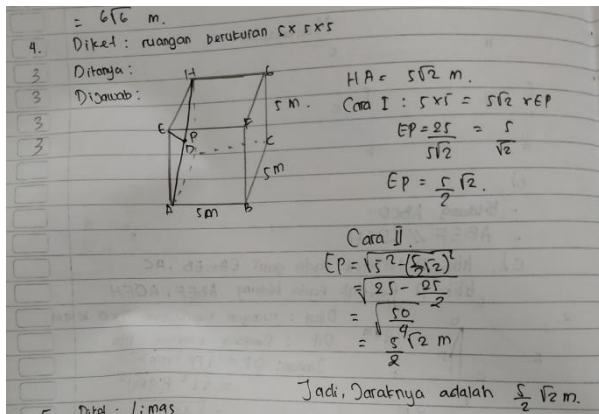 = 6√6 m.
4. Diket : ruangan berukuran 5 x 5 x 5
3 Ditanya :
3 Dijawab :
3
3
H
G
E
F
P
D
C
A
B
5 m.
5m
5m
HA = 5√2 m.
Cara I : 5 x 5 = 5√2 x EP
EP = 25/5√2 = 5/√2
EP = 5/2 √2.
Cara II.
EP = √5² - (5/2√2)²
= √25 - 25/2
= √50/4
= 5/2 √2 m
Jadi, Jaraknya adalah 5/2 √2 m.
5. Diket : limas